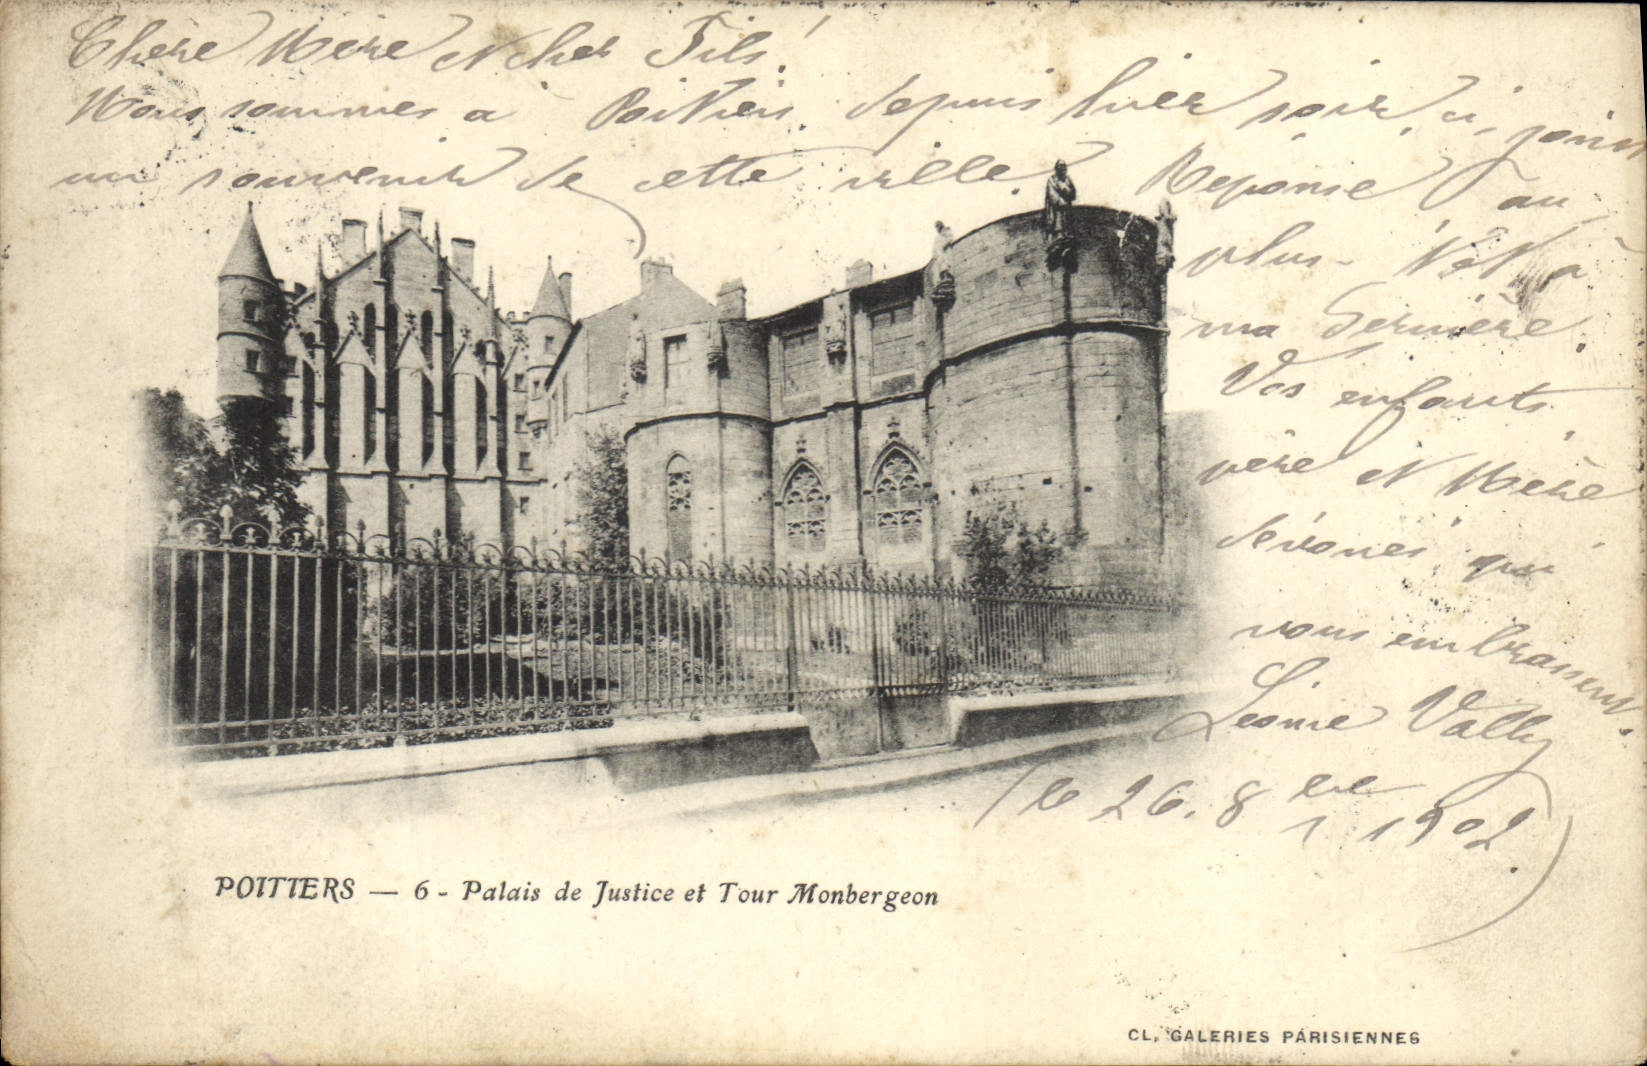 Chère Mère et cher Fils!
Nous sommes a Poitiers, depuis hier soir, ci, joint
un souvenir de cette ville. Reponse au
plus - tôt a
ma dernière.
Vos enfants
père et Mère
dévoués qui
vous embrassent.
Léonie Vally
(le 26. 8bre 1902.)
POITIERS — 6 - Palais de Justice et Tour Monbergeon
CL. GALERIES PARISIENNES